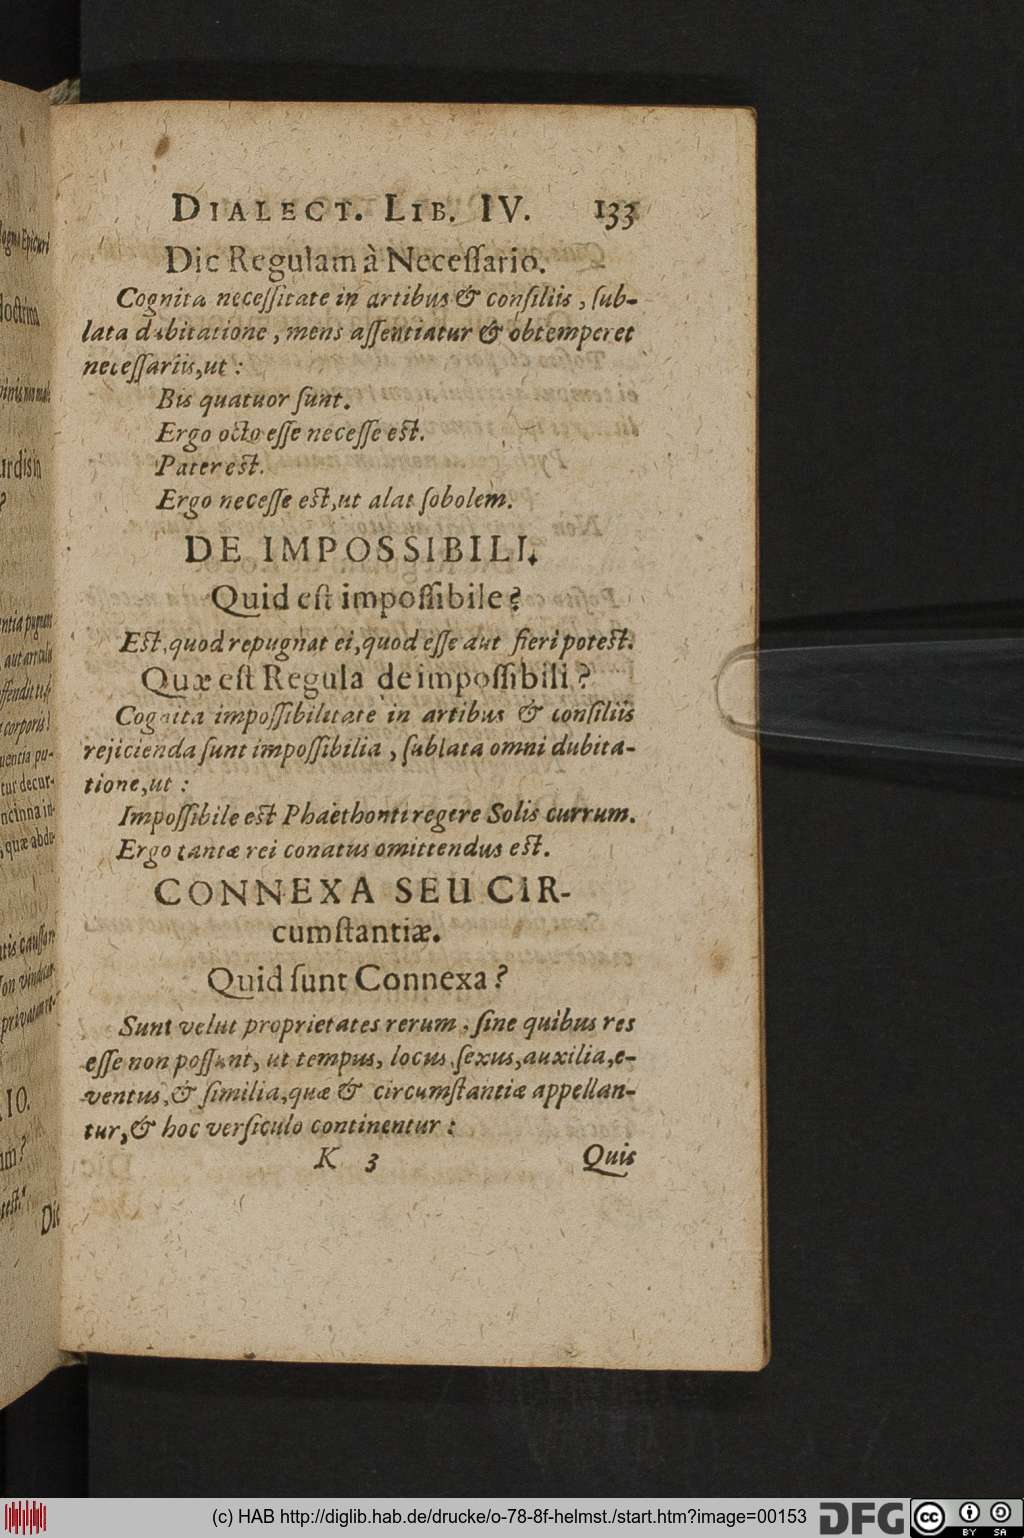 DIALECT. LIB. IV. 133
Dic Regulam à Neceſſario.
Cognita neceſſitate in artibus & conſiliis, ſub-
lata dubitatione, mens aſſentiatur & obtemperet
neceſſariis, ut:
Bis quatuor ſunt.
Ergo octo eſſe neceſſe eſt.
Pater eſt.
Ergo neceſſe eſt, ut alat ſobolem.
DE IMPOSSIBILI.
Quid eſt impoſſibile?
Eſt, quod repugnat ei, quod eſſe aut fieri poteſt.
Quæ eſt Regula de impoſſibili?
Cognita impoſſibilitate in artibus & conſiliis
rejicienda ſunt impoſſibilia, ſublata omni dubita-
tione, ut:
Impoſſibile eſt Phaëthonti regere Solis currum.
Ergo tantæ rei conatus omittendus eſt.
CONNEXA SEU CIR-
cumſtantiæ.
Quid ſunt Connexa?
Sunt velut proprietates rerum, ſine quibus res
eſſe non poſſunt, ut tempus, locus, ſexus, auxilia, e-
ventus, & ſimilia, quæ & circumſtantiæ appellan-
tur, & hoc verſiculo continentur:
K 3 Quis
(c) HAB http://diglib.hab.de/drucke/o-78-8f-helmst./start.htm?image=00153
DFG
cc BY SA